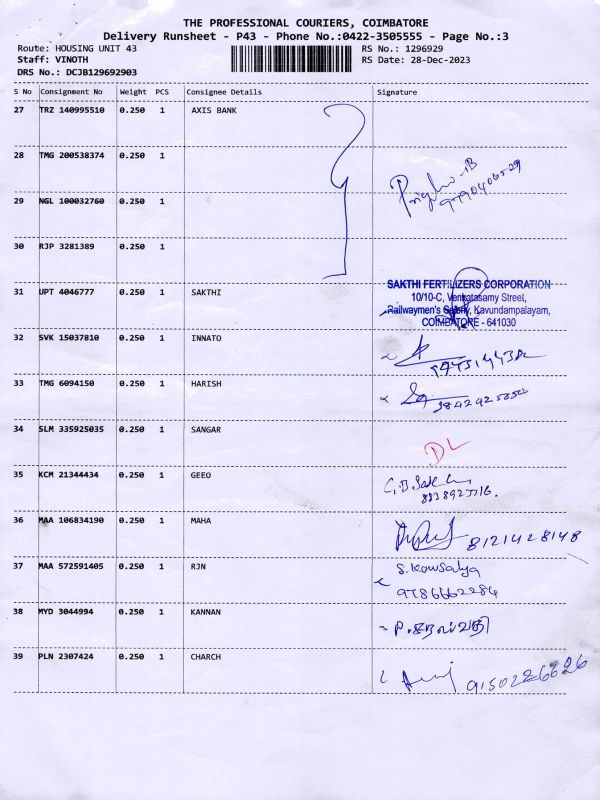 THE PROFESSIONAL COURIERS, COIMBATORE
Delivery Runsheet - P43 - Phone No.:0422-3505555 - Page No.:3
Route: HOUSING UNIT 43 RS No.: 1296929
Staff: VINOTH RS Date: 28-Dec-2023
DRS No.: DCJB129692903
S No Consignment No Weight PCS Consignee Details Signature
27 TRZ 140995510 0.250 1 AXIS BANK
28 TMG 200538374 0.250 1
29 NGL 100032760 0.250 1
30 RJP 3281389 0.250 1
31 UPT 4046777 0.250 1 SAKTHI
SAKTHI FERTILIZERS CORPORATION
10/10-C, Venkatasamy Street,
Railwaymen's Colony, Kavundampalayam,
COIMBATORE - 641030
32 SVK 15037810 0.250 1 INNATO
33 TMG 6094150 0.250 1 HARISH
34 SLM 335925035 0.250 1 SANGAR DL
35 KCM 21344434 0.250 1 GEEO
36 MAA 106834190 0.250 1 MAHA 8121428148
37 MAA 572591405 0.250 1 RJN S. Kowsalya
9786662284
38 MYD 3044994 0.250 1 KANNAN
39 PLN 2307424 0.250 1 CHARCH 9150226626